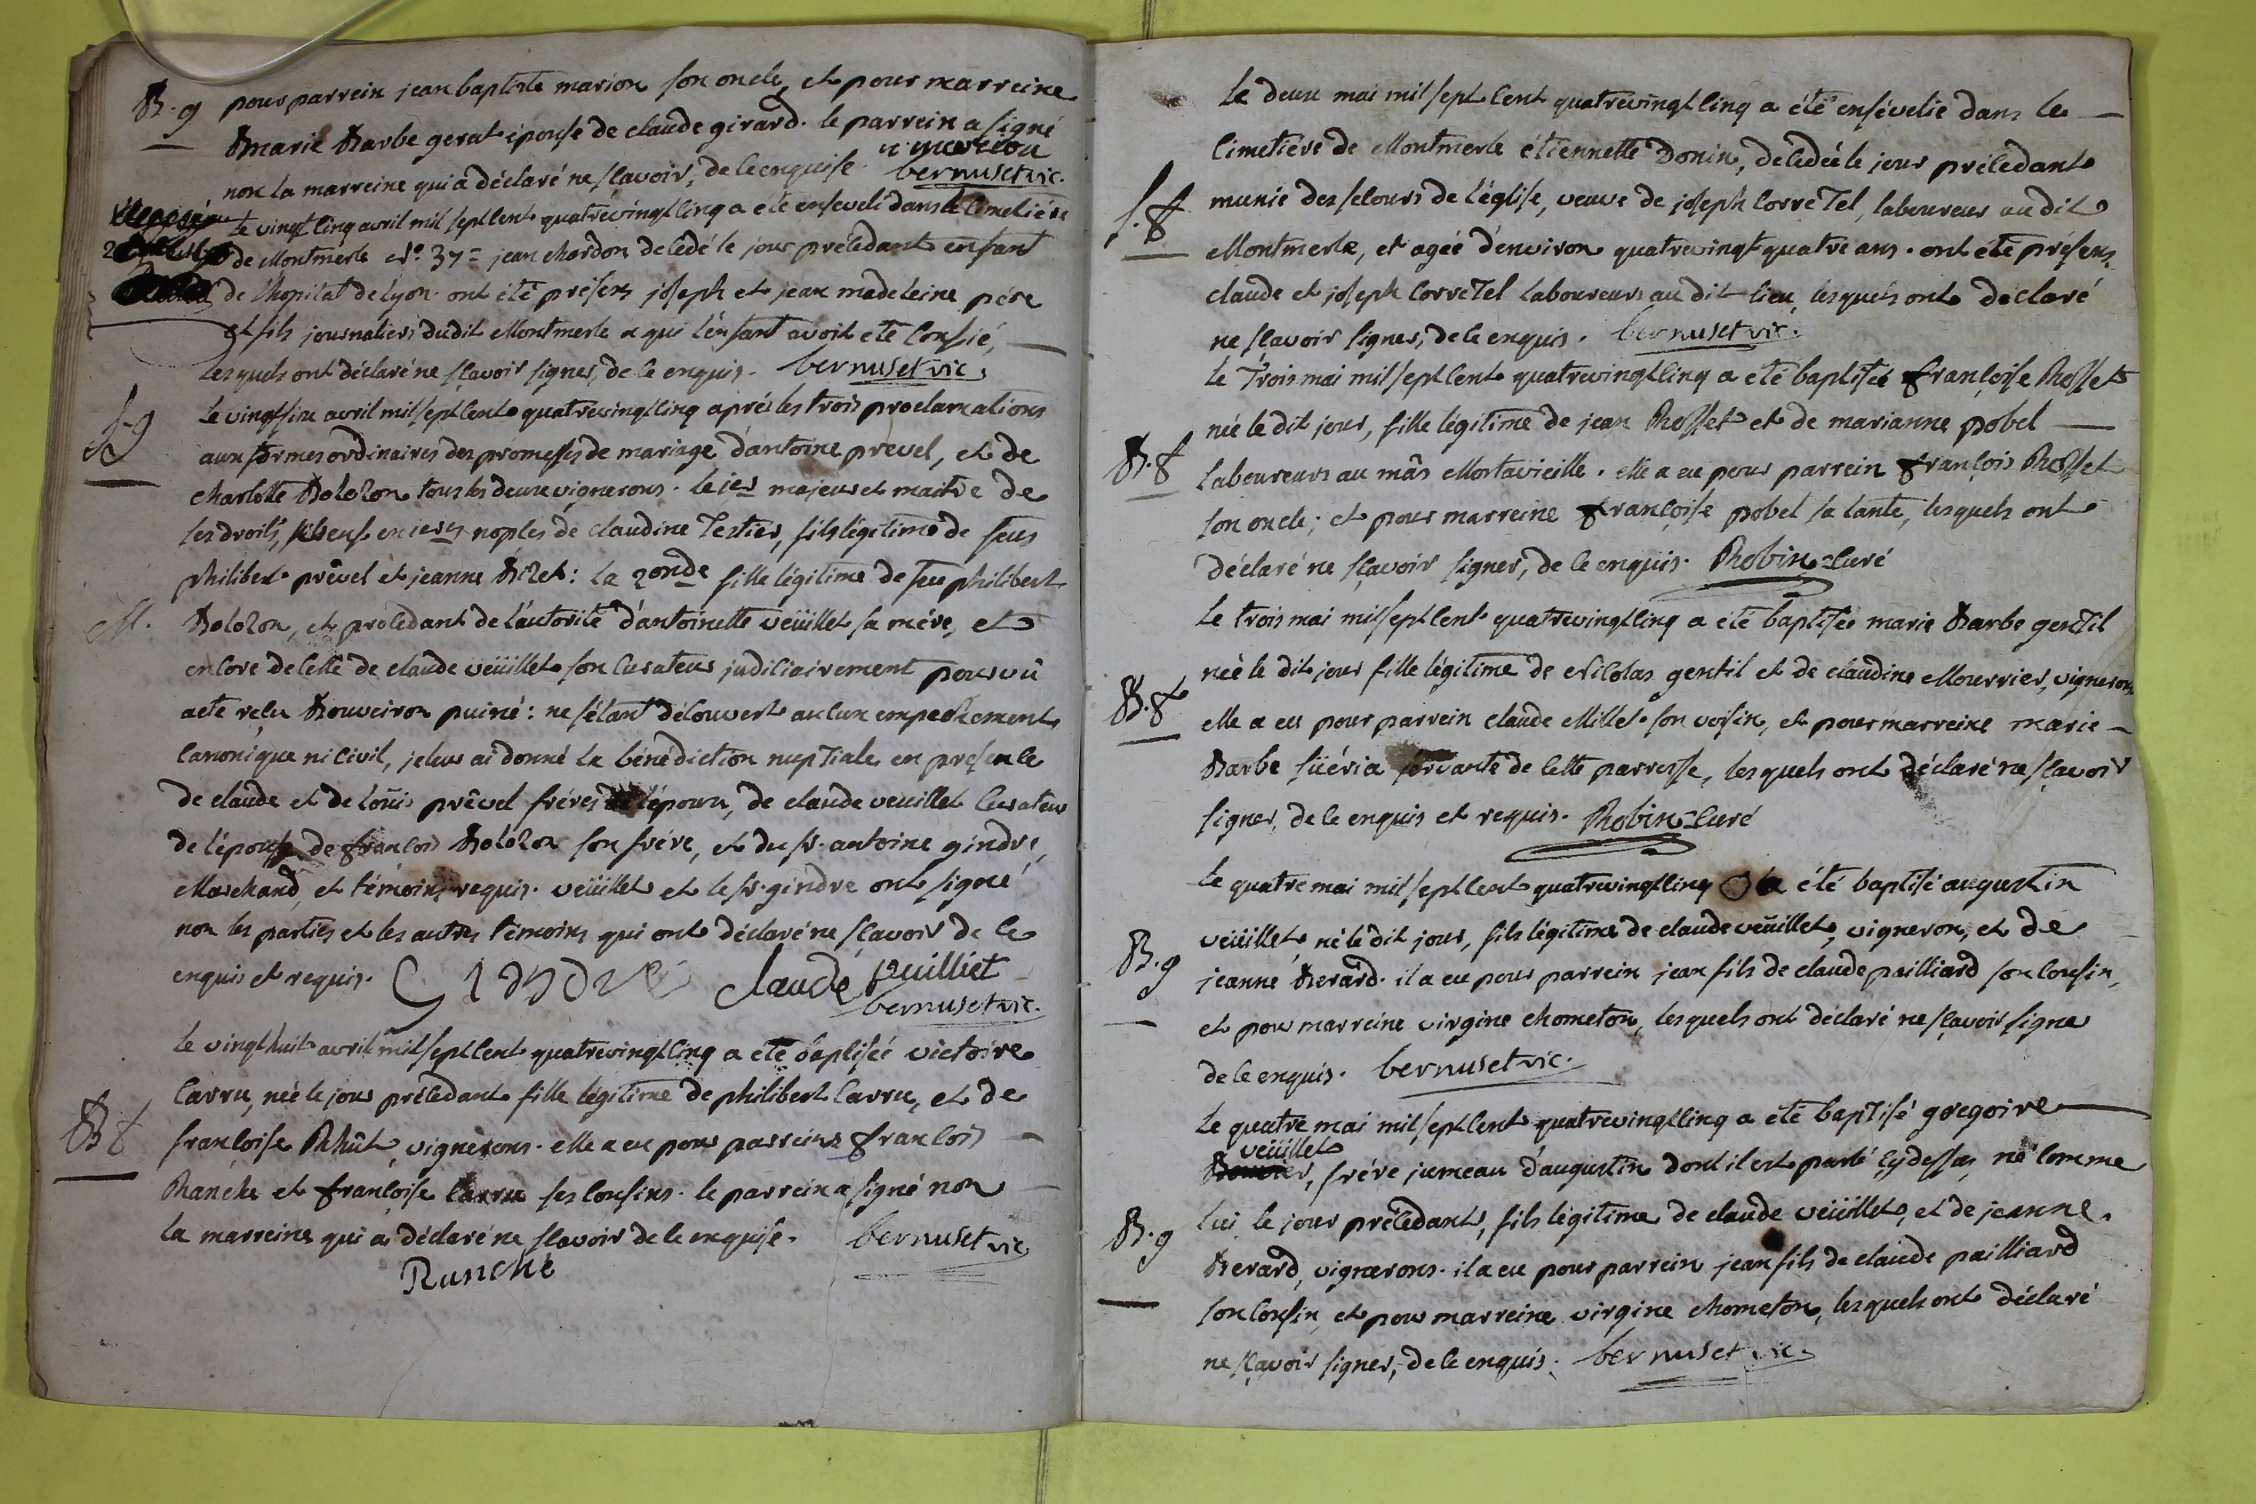 B. g pour parrein jean baptiste marion son oncle, et pour marreine
marie Barbe gerat épouse de claude girard. le parrein a signé
marion
non la marreine qui a déclaré ne sçavoir, de ce enquise. bernuset vic.
le vingt cinq avril mil sept cent quatrevingt cinq a été enseveli dans le cimetiére
de Montmerle N°. 37 = jean chardon décédé le jour précédant enfant
de l'hopital de Lyon. ont été présens joseph et jean madeleine pére
et fils journaliers dudit Montmerle a qui l'enfant avoit été confié,
lesquels ont déclaré ne sçavoir signer, de ce enquis. bernuset vic.
S. g
le vingt six avril mil sept cent quatrevingt cinq aprés les trois proclamations
aux formes ordinaires des promesses de mariage d'antoine prêvel, et de
charlotte Bolozon tous les deux vignerons. le ier majeur et maitre de
ses droits, veuf en ieres noples de claudine Tertier, fils légitime de feus
philibert prêvel et jeanne Bizet: la 2onde fille légitime de feu philibert
M. Bolozon, et procédant de l'autorité d'antoinette veüillet sa mére, et
encore de celle de claude veüillet son curateur judiciairement pourvû
acte reçu Bouveiron puiné: ne s'étant découvert aucun empechement
canonique ni civil, je leur ai donné la bénédiction nuptiale en présence
de claude et de loüis prêvel fréres de l'époux, de claude veuillet curateur
de l'épouse de françois Bolozon son frére, et du sr. antoine gindre,
Marchand, et témoins requis. veüillet et le sr. gindre ont signé
non les parties et les autres témoins qui ont déclaré ne sçavoir de ce
enquis et requis. Gindre Claude Vuilliet
bernuset vic.
le vingt huit avril mil sept cent quatrevingt cinq a été baptisée victoire
Carru, née le jour précédant fille légitime de philibert Carru, et de
B. f françoise Rhût, vignerons. elle a eu pour parreins françois
Ranche et françoise Carru ses cousins. le parrein a signé non
la marreine qui a déclaré ne sçavoir de ce enquise. bernuset vic
Ranche
Le deux mai mil sept cent quatrevingt cinq a été ensévelie dans le
Cimetiére de Montmerle étiennette Donin, décédée le jour précédant
S. f munie des secours de l'église, veuve de joseph Corretel, laboureur au dit
Montmerle, et agée d'environ quatrevingt quatre ans. ont été présens
claude et joseph Corretel laboureurs au dit lieu, lesquels ont déclaré
ne sçavoir signer, de ce enquis. bernuset vic.
le Trois mai mil sept cent quatrevingt cinq a été baptisée françoise Rosset
née le dit jour, fille légitime de jean Rosset et de marianne pobel
B. f laboureurs au mâs Mortavieille. elle a eu pour parrein françois Rosset
son oncle; et pour marreine françoise pobel sa tante, lesquels ont
déclaré ne sçavoir signer, de ce enquis. Robin curé
le trois mai mil sept cent quatrevingt cinq a été baptisée marie Barbe gentil
née le dit jour fille légitime de Nicolas gentil et de claudine Mourrier, vignerons
B. f elle a eu pour parrein claude Millet son voisin, et pour marreine marie
Barbe füéria servante de cette parroisse, lesquels ont déclaré ne sçavoir
signer, de ce enquis et requis. Robin curé
le quatre mai mil sept cent quatrevingt cinq a été baptisé augustin
B. g veüillet, né le dit jour, fils légitime de claude veüillet, vigneron, et de
jeanne Berard. il a eu pour parrein jean fils de claude pailliard son cousin,
et pour marreine virgine chometon, lesquels ont déclaré ne sçavoir signer
de ce enquis. bernuset vic.
le quatre mai mil sept cent quatrevingt cinq a été baptisé gregoire
veüillet
frére jumeau d'augustin dont il est parlé cydessus, né comme
B. g lui le jour précédant, fils légitime de claude veüillet, et de jeanne
Berard, vignerons. il a eu pour parrein jean fils de claude pailliard
son cousin, et pour marreine virgine chometon, lesquels ont déclaré
ne sçavoir signer, de ce enquis. bernuset vic.